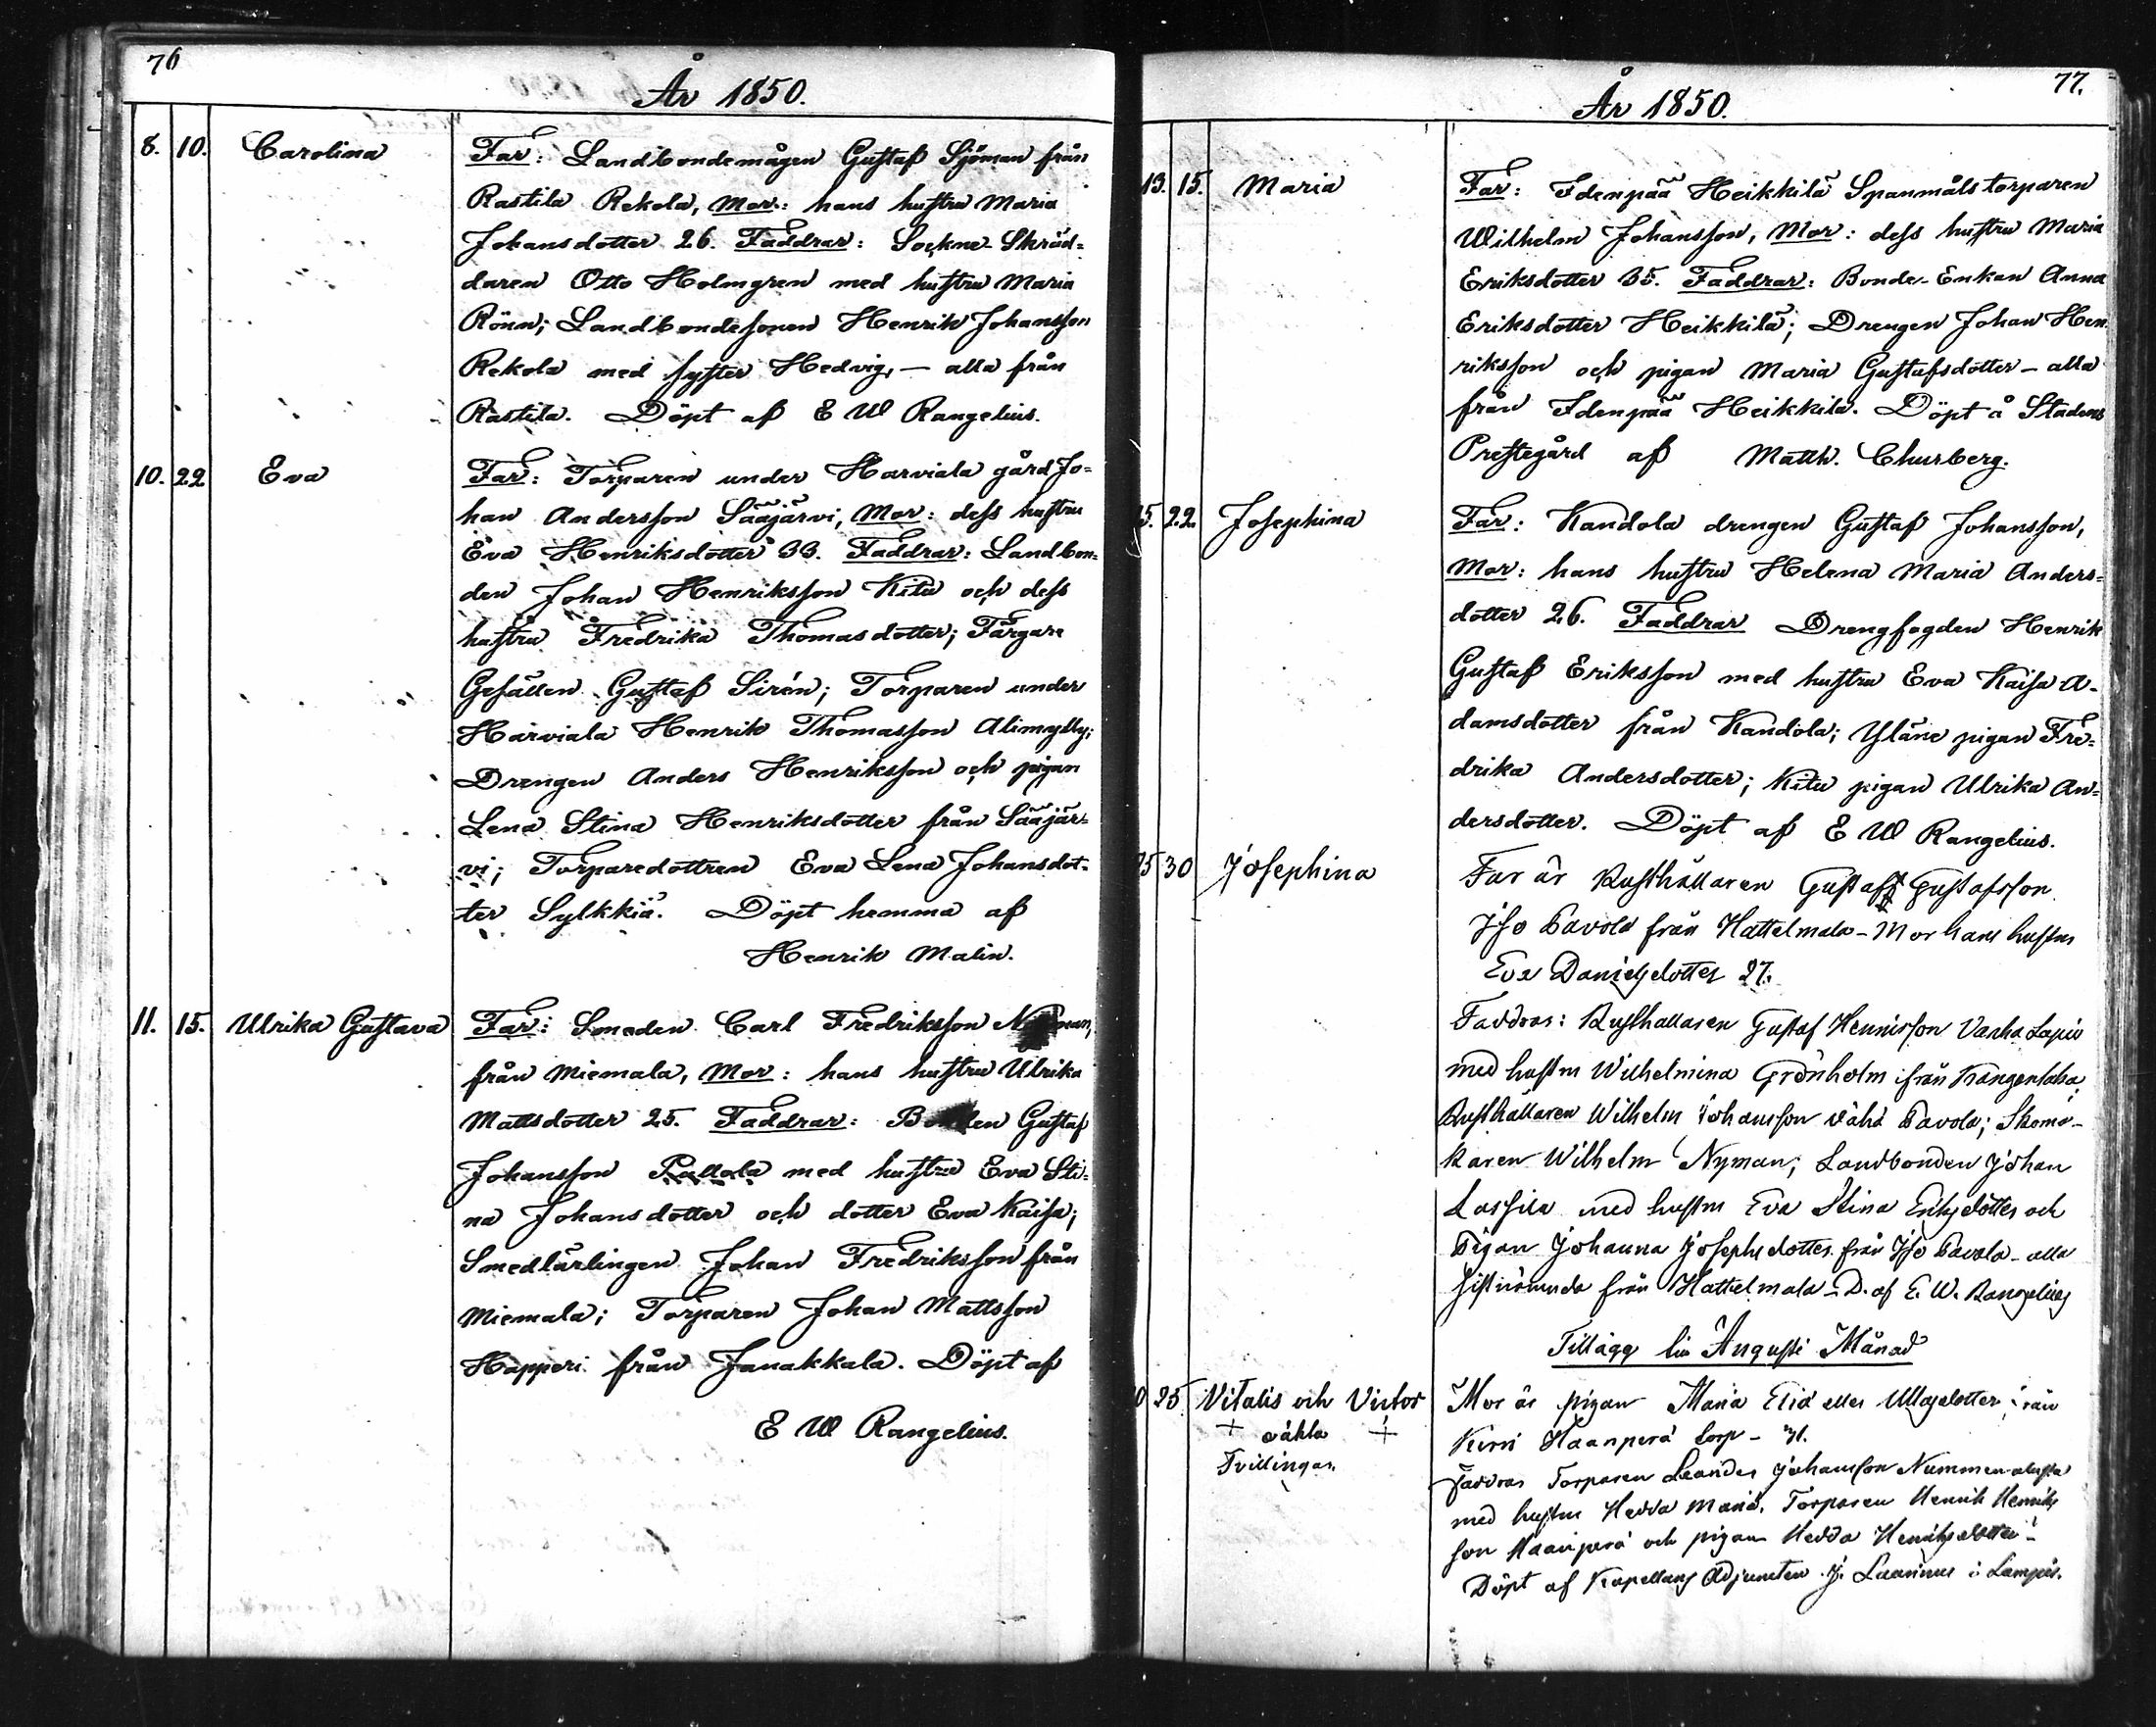 76
År 1850.
8. 10. Carolina Far: Landbondemågen Gustaf Sjöman från
Rastila Rekola, Mor: hans hustru Maria
Johansdotter 26. Faddrar: Sockne-Skräd=
daren Otto Holmgren med hustru Maria
Rönn; Landbondesonen Henrik Johansson
Rekola med syster Hedvig, — alla från
Rastila. Döpt af E W Rangelius.
10. 22 Eva Far: Torparen under Harviala gård Jo=
han Andersson Sääjärvi, Mor: dess hustru
Eva Henriksdotter 33. Faddrar: Landbon=
den Johan Henriksson Kitu och dess
hustru Fredrika Thomasdotter; Färgare
Gesällen Gustaf Sirén; Torparen under
Harviala Henrik Thomasson Alimylly;
Drengen Anders Henriksson och pigan
Lena Stina Henriksdotter från Sääjär=
vi; Torparedottren Eva Lena Johansdot=
ter Sylkkiä. Döpt hemma af
Henrik Malin.
11. 15. Ulrika Gustava Far: Smeden Carl Fredriksson
från Miemala, Mor: hans hustru Ulrika
Mattsdotter 25. Faddrar: Bonden Gustaf
Johansson Rullola med hustru Eva Sti=
na Johansdotter och dotter Eva Kaisa;
Smedlärlingen Johan Fredriksson från
Miemala; Torparen Johan Mattsson
Happeri från Janakkala. Döpt af
E W Rangelius.
77.
År 1850.
13. 15. Maria Far: Idenpää Heikkilä Spanmålstorparen
Wilhelm Johansson, Mor: dess hustru Maria
Eriksdotter 35. Faddrar: Bonde-Enkan Anna
Eriksdotter Heikkilä; Drengen Johan Hen
riksson och pigan Maria Gustafsdotter — alla
från Idenpää Heikkilä. Döpt å Stadens
Prestegård af Matth. Churberg.
15. 22. Josephina Far: Kandola drengen Gustaf Johansson,
Mor: hans hustru Helena Maria Anders=
dotter 26. Faddrar Drengfogden Henrik
Gustaf Eriksson med hustru Eva Kaisa A=
damsdotter från Kandola; Yläne pigan Fre=
drika Andersdotter; Kitu pigan Ulrika An=
dersdotter. Döpt af E W Rangelius.
25 30 Josephina Far är Rusthållaren Gustaf Gustafsson
Iso Pavola från Hattelmala - Mor hans hustru
Eva Danielsdotter 27.
Faddrar: Rusthållaren Gustaf Henrisson Vanha
med hustru Wilhelmina Grönholm från
Rusthållaren Wilhelm Johansson Vähä Pavola; Skoma-
karen Wilhelm Nyman; Landbonden Johan
Lassila med hustru Eva Stina Eriksdotter och
Pigan Johanna Josephsdotter från Iso Pavola - alla
sistnämnda från Hattelmala - D. af E. W. Rangelius
Tillägg för Augusti Månad
25. Vitalis och Victor
+ oäkta +
Tvillingar.
Mor är pigan Maria Elia eller från
Kirri Haanperä torp - 31.
Faddrar Torparen Leander Johansson
med hustru Hedda Maria, Torparen Henrik Henriks
son Haanperä och pigan Hedda Henriksdotter -
Döpt af Kapellans Adjuncten J. i Lampis.